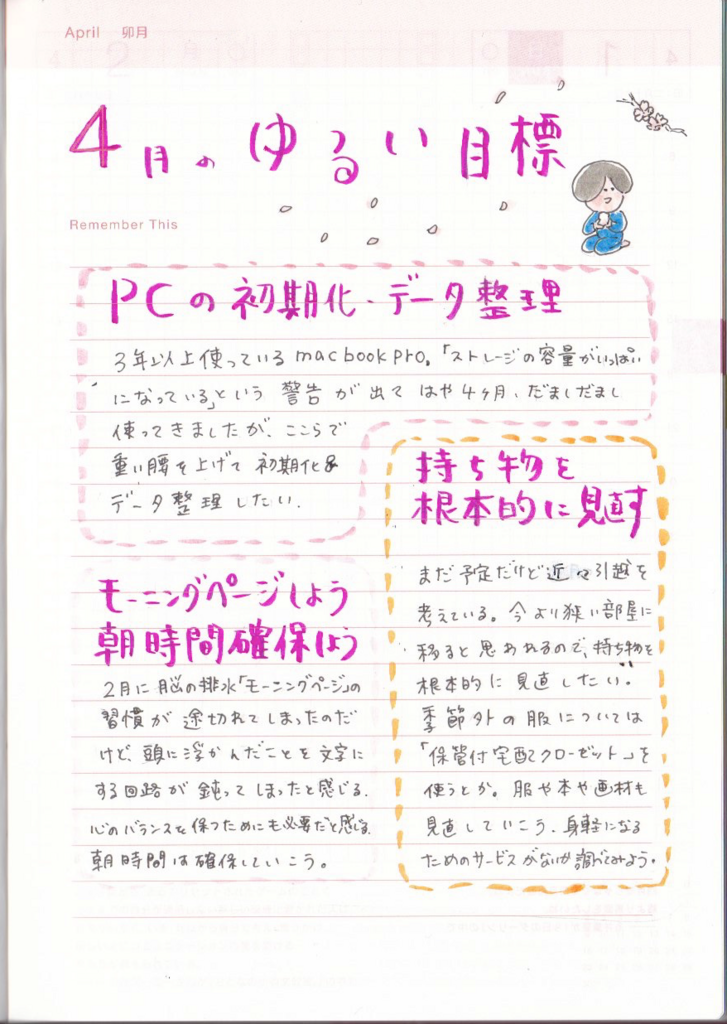 April 卯月
4月のゆるい目標
Remember This
PCの初期化・データ整理
3年以上使っているmacbookpro。「ストレージの容量がいっぱい
になっている」という 警告 が 出て はや4ヶ月、だましだまし
使ってきましたが、ここらで
重い腰を上げて 初期化&
データ整理したい.
持ち物を
根本的に見直す
まだ予定だけど近々引越を
考えている。今より狭い部屋に
移ると思われるので、持ち物を
根本的に見直したい。
季節外の服については
「保管付宅配クローゼット」を
使うとか。服や本や画材も
見直していこう。身軽になる
ためのサービスがないか調べてみよう。
モーニングページしよう
朝時間確保しよう
2月に脳の排水「モーニングページ」の
習慣が途切れてしまったのだ
けど、頭に浮かんだことを文字に
する回路が鈍ってしまったと感じる.
心のバランスを保つためにも必要だと感じる.
朝時間は確保していこう。